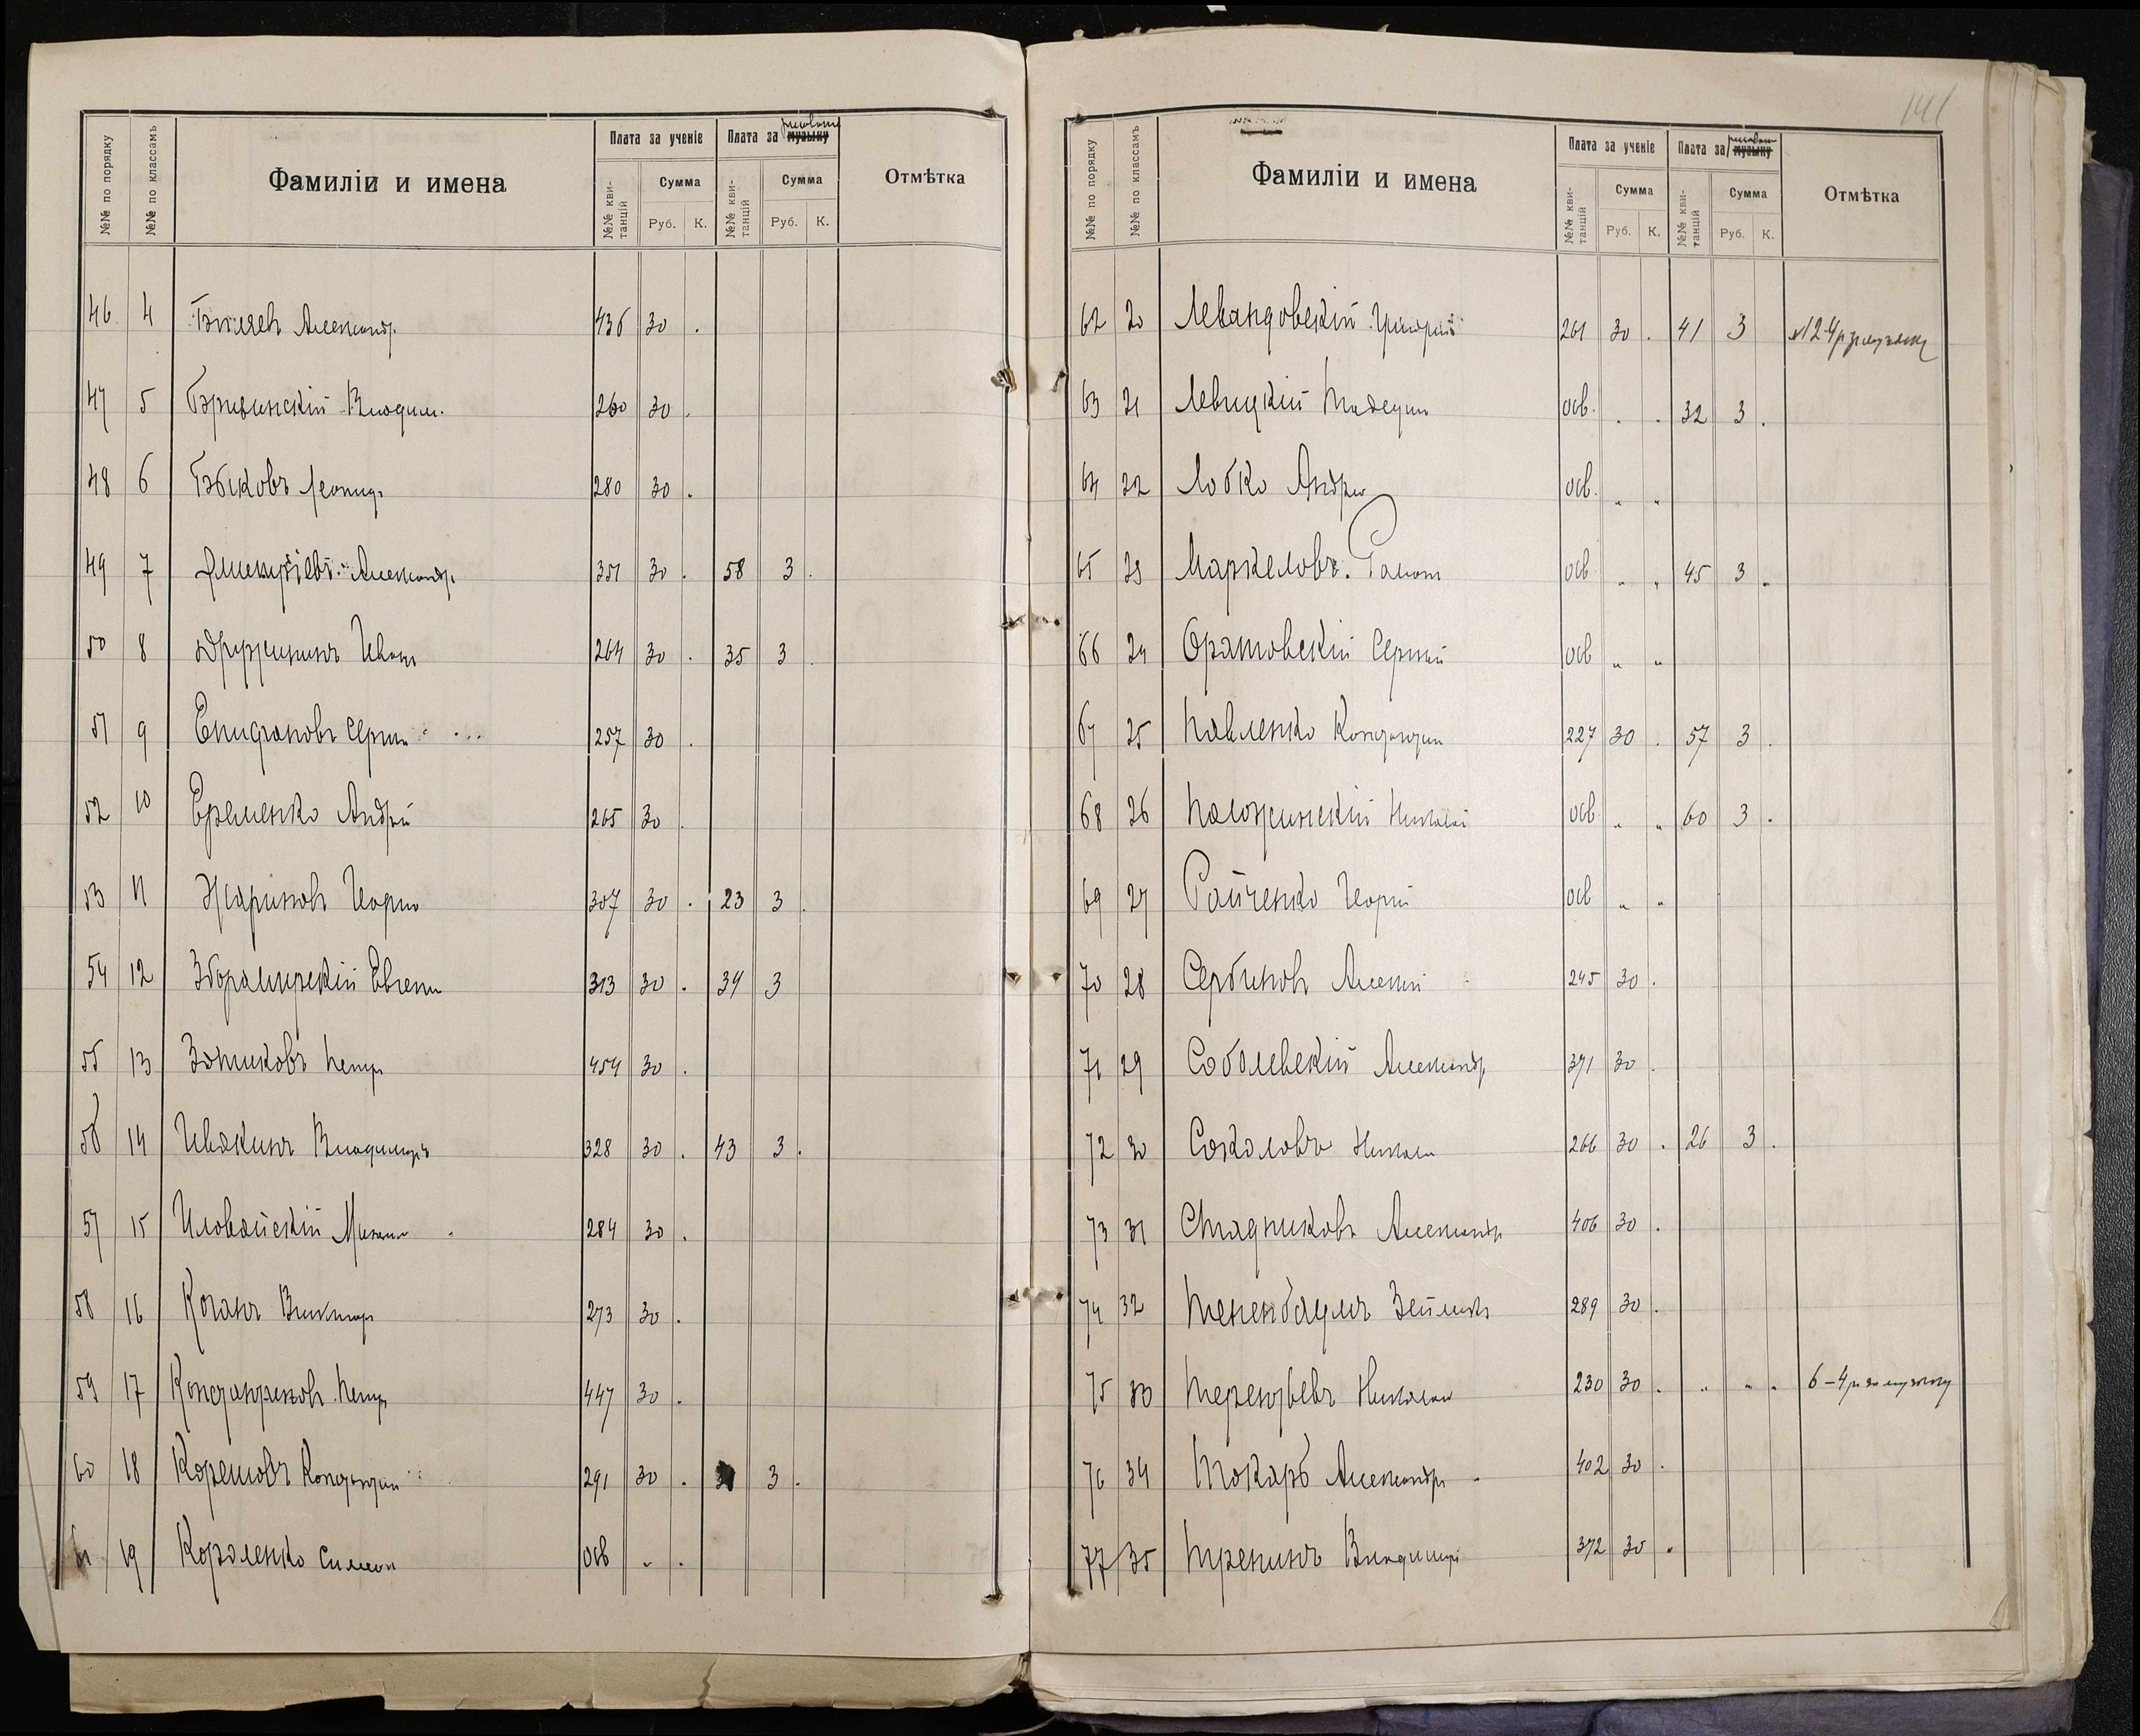 141
№№ по порядку №№ по классамъ Фамиліи и имена Плата за ученіе Плата за музыку рисован Отмѣтка
№№ кви-танцій Сумма Руб. К. №№ кви-танцій Сумма Руб. К.
46 4 Александр. 436 30 .
47 5 Владим. 260 30 .
48 6 Быковъ Леонид 280 30 .
49 7 Александр. 351 30 . 58 3 .
50 8 Дружининъ Иван 264 30 . 35 3 .
51 9 Епифановъ Сергѣй 257 30 .
52 10 Еременко Андрей 265 30 .
53 11 Жариновъ Георгій 307 30 . 23 3 .
54 12 Зборамирскій Евгеній 313 30 . 34 3
55 13 Зотиковъ Петр 454 30 .
56 14 Ивакинъ Владимиръ 328 30 . 43 3 .
57 15 Иловайскій Михаил 284 30 .
58 16 Коганъ Виктор 273 30 .
59 17 Петр 447 30 .
60 18 Коремовъ Константин 291 30 . 3 .
61 19 Короленко Симеон Осв „ .
№№ по порядку №№ по классамъ Фамиліи и имена Плата за ученіе Плата за музыку рисован Отмѣтка
№№ кви-танцій Сумма Руб. К. №№ кви-танцій Сумма Руб. К.
62 20 Левандовскій 261 30 . 41 3 №12-4р за музыку
63 21 Левицкій Осв. . . 32 3 .
64 22 Лобко Андрей Осв. „ „
65 23 Маркеловъ Роман Осв „ „ 45 3 .
66 24 Оратовскій Сергѣй Осв „ „
67 25 Павленко Константин 227 30 . 57 3 .
68 26 Паложинскій Николай Осв „ „ 60 3 .
69 27 Райченко Георгій Осв „ „
70 28 Сербиновъ Алексѣй 245 30 .
71 29 Соболевскій Александр 371 30 .
72 30 Соколовъ Николай 266 30 . 26 3 .
73 31 Стадниковъ Александр 406 30 .
74 32 Тененбаумъ Зейликъ 289 30 .
75 33 Терентьевъ Николай 230 30 . „ „ . 6-4р за музыку
76 34 Токарь Александр 402 30 .
77 35 Тренинъ Владимир 372 30 .